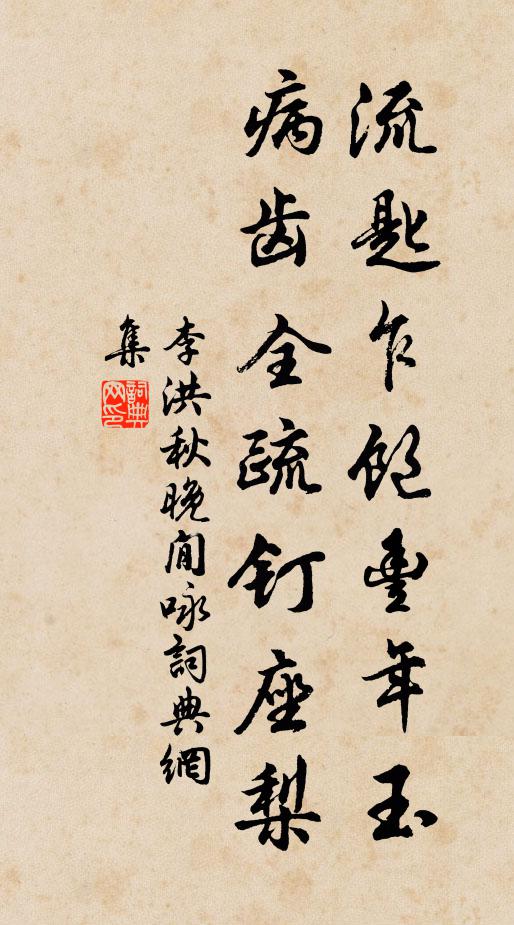 流匙乍饱豊年玉
病齿全疏钉座梨
李洪秋晚閒咏詞典網
集
詞典網印